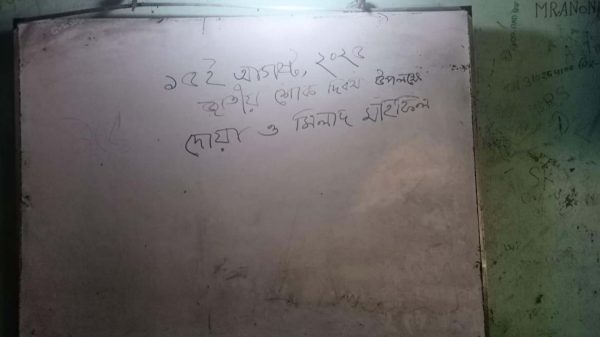 ১৫ই আগষ্ট, ২০২৫
জাতীয় শোক দিবস উপলক্ষে
দোয়া ও মিলাদ মাহফিল
MRANON